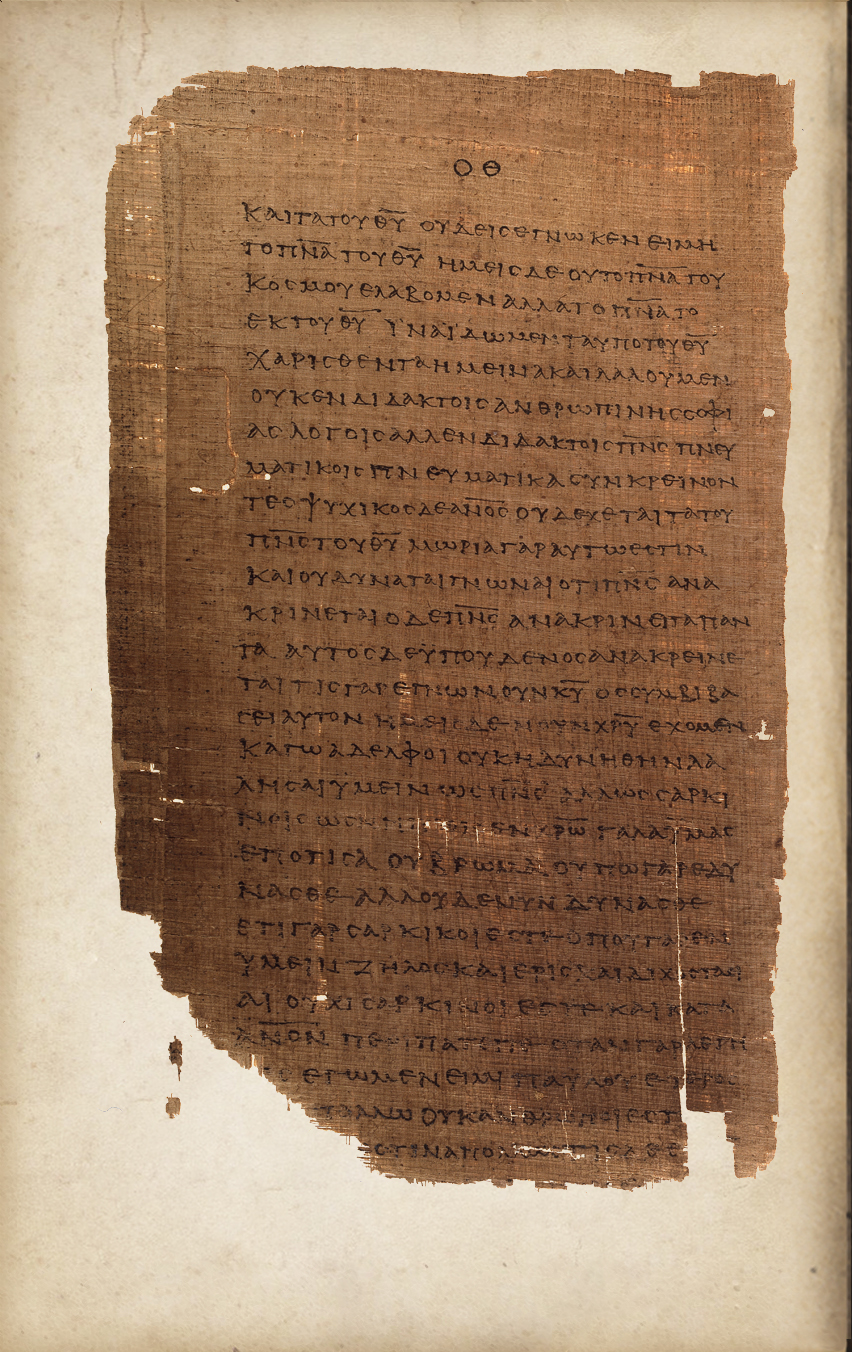 ΟΘ
ΚΑΙ ΤΑ ΤΟΥ Θ̅Υ̅ ΟΥΔΕΙΣ ΕΓΝΩΚΕΝ ΕΙ ΜΗ
ΤΟ Π̅Ν̅Α̅ ΤΟΥ Θ̅Υ̅ ΗΜΕΙΣ ΔΕ ΟΥ ΤΟ Π̅Ν̅Α̅ ΤΟΥ
ΚΟΣΜΟΥ ΕΛΑΒΟΜΕΝ ΑΛΛΑ ΤΟ Π̅Ν̅Α̅ ΤΟ
ΕΚ ΤΟΥ Θ̅Υ̅ ΪΝΑ ΪΔΩΜΕΝ ΤΑ ΥΠΟ ΤΟΥ Θ̅Υ̅
ΧΑΡΙΣΘΕΝΤΑ ΗΜΕΙΝ Α ΚΑΙ ΛΑΛΟΥΜΕΝ
ΟΥΚ ΕΝ ΔΙΔΑΚΤΟΙΣ ΑΝΘΡΩΠΙΝΗΣ ΣΟΦΙ
ΑΣ ΛΟΓΟΙΣ ΑΛΛ ΕΝ ΔΙΔΑΚΤΟΙΣ Π̅Ν̅Σ̅ ΠΝΕΥ
ΜΑΤΙΚΟΙΣ ΠΝΕΥΜΑΤΙΚΑ ΣΥΝΚΡΕΙΝΟΝ
ΤΕΣ ΨΥΧΙΚΟΣ ΔΕ Α̅Ν̅Ο̅Σ̅ ΟΥ ΔΕΧΕΤΑΙ ΤΑ ΤΟΥ
Π̅Ν̅Σ̅ ΤΟΥ Θ̅Υ̅ ΜΩΡΙΑ ΓΑΡ ΑΥΤΩ ΕΣΤΙΝ
ΚΑΙ ΟΥ ΔΥΝΑΤΑΙ ΓΝΩΝΑΙ ΟΤΙ Π̅Ν̅Σ̅ ΑΝΑ
ΚΡΙΝΕΤΑΙ Ο ΔΕ Π̅Ν̅Σ̅ ΑΝΑΚΡΙΝΕΙ ΤΑ ΠΑΝ
ΤΑ ΑΥΤΟΣ ΔΕ ΫΠ ΟΥΔΕΝΟΣ ΑΝΑΚΡΕΙΝΕ
ΤΑΙ ΤΙΣ ΓΑΡ ΕΓΝΩ ΝΟΥΝ Κ̅Υ̅ ΟΣ ΣΥΜΒΙΒΑ
ΣΕΙ ΑΥΤΟΝ ΗΜΕΙΣ ΔΕ ΝΟΥΝ Χ̅Ρ̅Υ̅ ΕΧΟΜΕΝ
ΚΑΓΩ ΑΔΕΛΦΟΙ ΟΥΚ ΗΔΥΝΗΘΗΝ ΛΑ
ΛΗΣΑΙ ΥΜΕΙΝ ΩΣ Π̅Ν̅Σ̅ ΑΛΛ ΩΣ ΣΑΡΚΙ
ΝΟΙΣ ΩΣ ΝΗΠΙΟΙΣ ΕΝ Χ̅Ρ̅Ω̅ ΓΑΛΑ ΫΜΑΣ
ΕΠΟΤΙΣΑ ΟΥ ΒΡΩΜΑ ΟΥΠΩ ΓΑΡ ΕΔΥ
ΝΑΣΘΕ ΑΛΛ ΟΥΔΕ ΝΥΝ ΔΥΝΑΣΘΕ
ΕΤΙ ΓΑΡ ΣΑΡΚΙΚΟΙ ΕΣΤΕ ΟΠΟΥ ΓΑΡ ΕΝ
ΫΜΕΙΝ ΖΗΛΟΣ ΚΑΙ ΕΡΙΣ ΚΑΙ ΔΙΧΟΣΤΑΣΙ
ΑΙ ΟΥΧΙ ΣΑΡΚΙΝΟΙ ΕΣΤΕ ΚΑΙ ΚΑΤΑ
Α̅Ν̅Ο̅Ν̅ ΠΕΡΙΠΑΤΕΙΤΕ ΟΤΑΝ ΓΑΡ ΛΕΓΗ
ΕΓΩ ΜΕΝ ΕΙΜΙ ΠΑΥΛΟΥ
ΟΥΚ ΑΝΘΡΩΠΟΙ ΕΣΤΕ